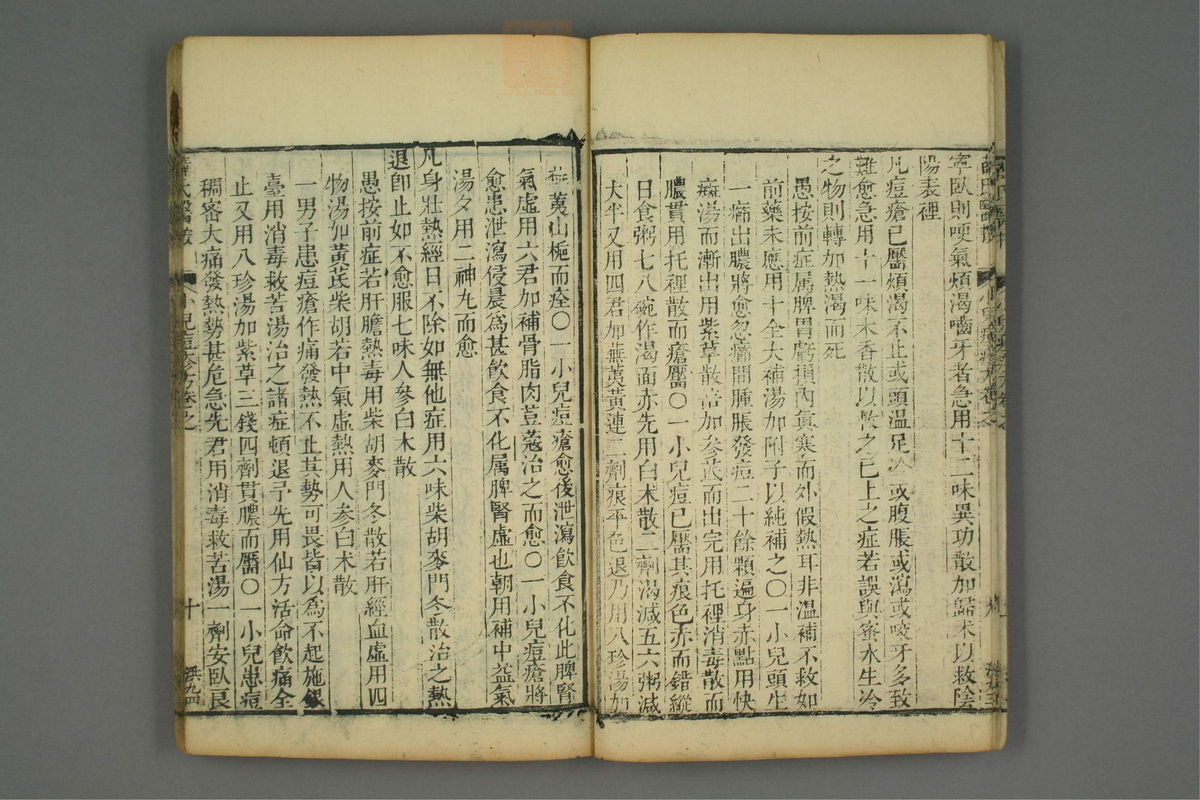 寧臥則哽氣煩渴嚙牙者急用十二味異功散加歸术以救陰
陽表裡
凡痘瘡已靨煩渴不止或頭溫足冷或腹脹或瀉或咬牙多致
難愈急用十一味木香散以救之已上之症若誤與蜜水生冷
之物則轉加熱渴而死
愚按前症属脾胃虧損内眞寒而外假熱耳非溫補不救如
前藥未應用十全大補湯加附子以純補之〇一小兒頭生
一癤出膿將愈忽癤間腫脹發痘二十餘顆遍身赤點用快
癍湯而漸出用紫草散倍加參芪而出完用托裡消毒散而
膿貫用托裡散而瘡靨〇一小兒痘已靨其痕色赤而錯縱
日食粥七八碗作渴面赤先用白术散二劑渴減五六粥減
大半又用四君加蕪荑黃連二劑痕平色退乃用八珍湯加
蕪荑山梔而痊〇一小兒痘瘡愈後泄瀉飲食不化此脾腎
氣虛用六君加補骨脂肉荳蔻治之而愈〇一小兒痘瘡將
愈患泄瀉侵晨爲甚飲食不化属脾腎虛也朝用補中益氣
湯夕用二神丸而愈
凡身壯熱經日不除如無他症用六味柴胡麥門冬散治之熱
退卽止如不愈服七味人參白术散
愚按前症若肝膽熱毒用柴胡麥門冬散若肝經血虛用四
物湯加黃芪柴胡若中氣虛熱用人參白术散
一男子患痘瘡作痛發熱不止其勢可畏皆以為不起施銀
臺用消毒救苦湯治之諸症頓退予先用仙方活命飲痛全
止又用八珍湯加紫草三錢四劑貫膿而靨〇一小兒患痘
稠密大痛發熱勢甚危急先君用消毒救苦湯一劑安臥良
小兒痘疹方卷之
十